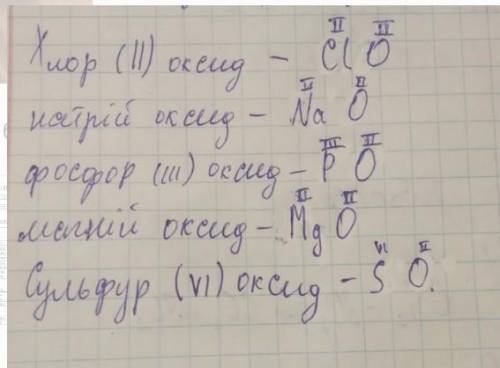 Хлор (II) оксид - II Cl II O
натрій оксид - I Na II O
фосфор (III) оксид - III P II O
магній оксид - II Mg II O
Сульфур (VI) оксид - VI S II O.